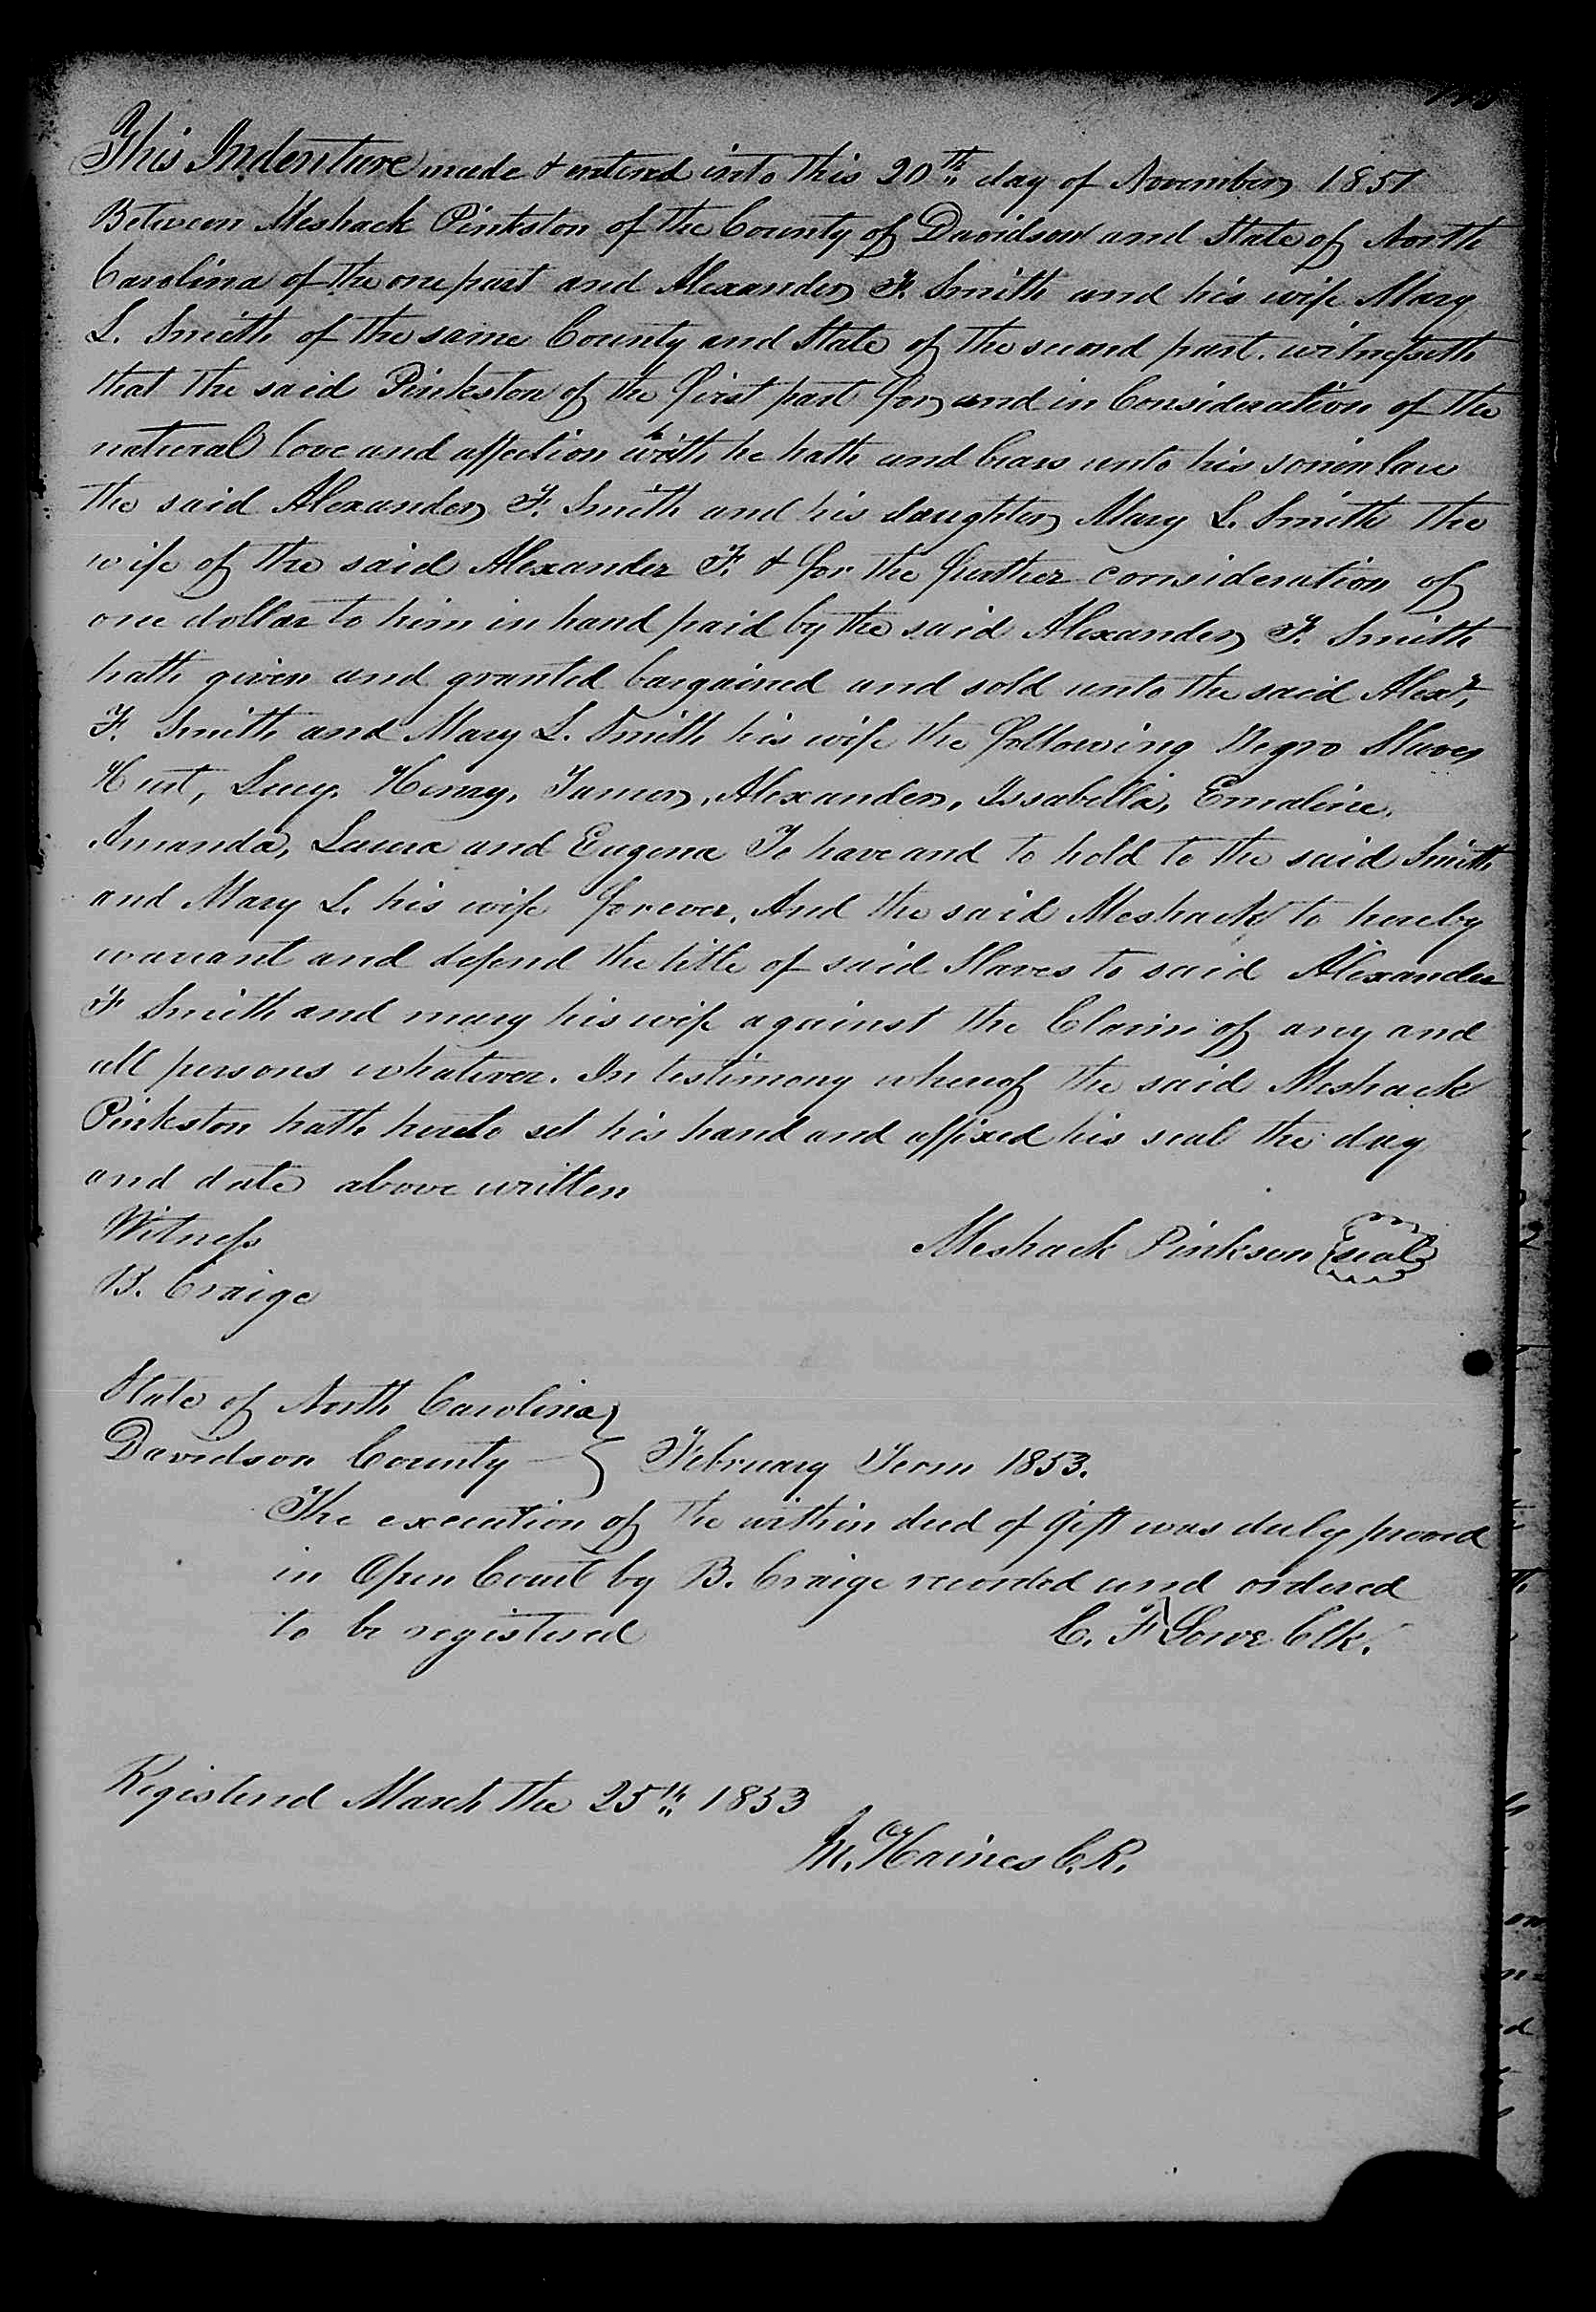 This Indenture made & entered into this 20th day of November 1851
Between Meshack Pinkston of the County of Davidson and State of North
Carolina of the one part and Alexander F. Smith and his wife Mary
L. Smith of the same County and State of the second part. witnesseth
that the said Pinkston of the first part for and in Consideration of the
natural love and affection with he hath and bears unto his son in law
the said Alexander F. Smith and his daughter Mary L. Smith the
wife of the said Alexander F. & for the further consideration of
one dollar to him in hand paid by the said Alexander F. Smith
hath given and granted bargained and sold unto the said Alexr.
F. Smith and Mary L. Smith his wife the following Negro Slaves
Lucy, Henry, Alexander, Issabella, Emaline,
Amanda, Laura and Eugena To have and to hold to the said Smith
and Mary L. his wife forever. And the said Meshack to hereby
warrant and defend the title of said Slaves to said Alexander
F Smith and mary his wife against the Claim of any and
all persons whatever. In testimony whereof the said Meshack
Pinkston hath hereto set his hand and affixed his seal the day
and date above written
Witness
Meshack Pinkson (seal)
B. Craige
State of North Carolina
Davidson County } February Term 1853.
The execution of the within deed of gift was duly proved
in Open Court by B. Craige recorded and ordered
to be registered
C. F Lowe Clk.
Registered March the 25th 1853
M. Haines C.R.